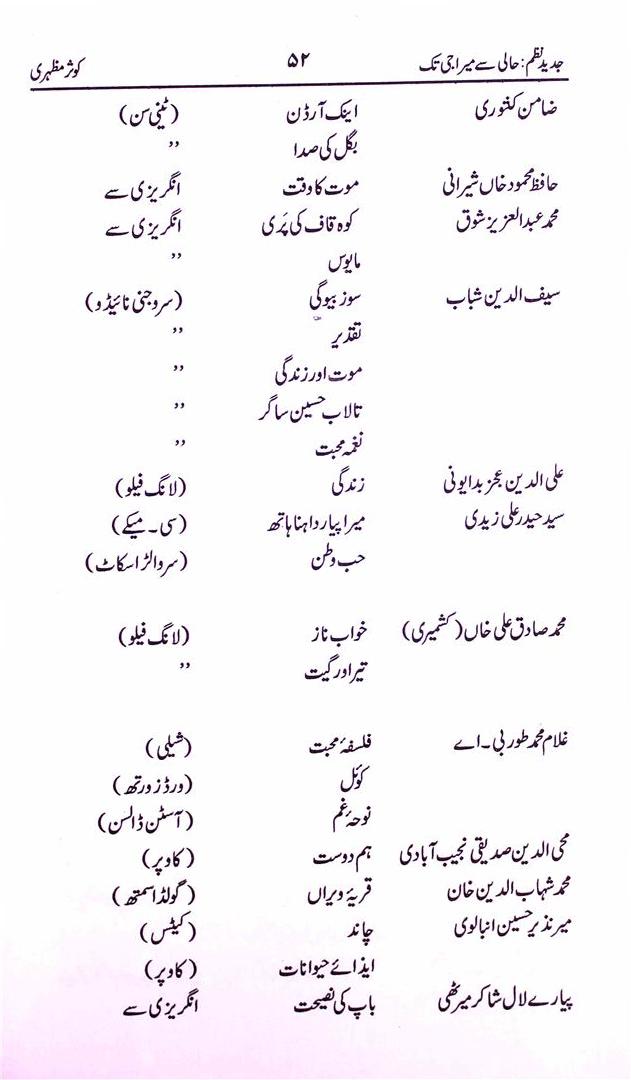 جدید نظم: حالی سے میراجی تک ۵۲ کوثر مظہری
ضامن کنتوری اینک آرڈن (ٹینی سن)
بگل کی صدا ,,
حافظ محمود خاں شیرانی موت کا وقت انگریزی سے
محمد عبدالعزیز شوق کوہ قاف کی پَری انگریزی سے
مایوس ,,
سیف الدین شباب سوز بیوگی (سروجنی نائیڈو)
تقدیر ,,
موت اور زندگی ,,
تالاب حسین ساگر ,,
نغمہ محبت ,,
علی الدین عجز بدایونی زندگی (لانگ فیلو)
سید حیدر علی زیدی میرا پیارا داہنا ہاتھ (سی۔ میکے)
حب وطن (سر والٹر اسکاٹ)
محمد صادق علی خاں (کشمیری) خواب ناز (لانگ فیلو)
تیر اور گیت ,,
غلام محمد طور بی۔اے فلسفۂ محبت (شیلی)
کوئل (ورڈزورتھ)
نوحۂ غم (آسٹن ڈالسن)
محی الدین صدیقی نجیب آبادی ہم دوست (کاوپر)
محمد شہاب الدین خان قریۂ ویراں (گولڈ اسمتھ)
میر نذیر حسین انبالوی چاند (کیٹس)
ایذائے حیوانات (کاوپر)
پیارے لال شاکر میرٹھی باپ کی نصیحت انگریزی سے